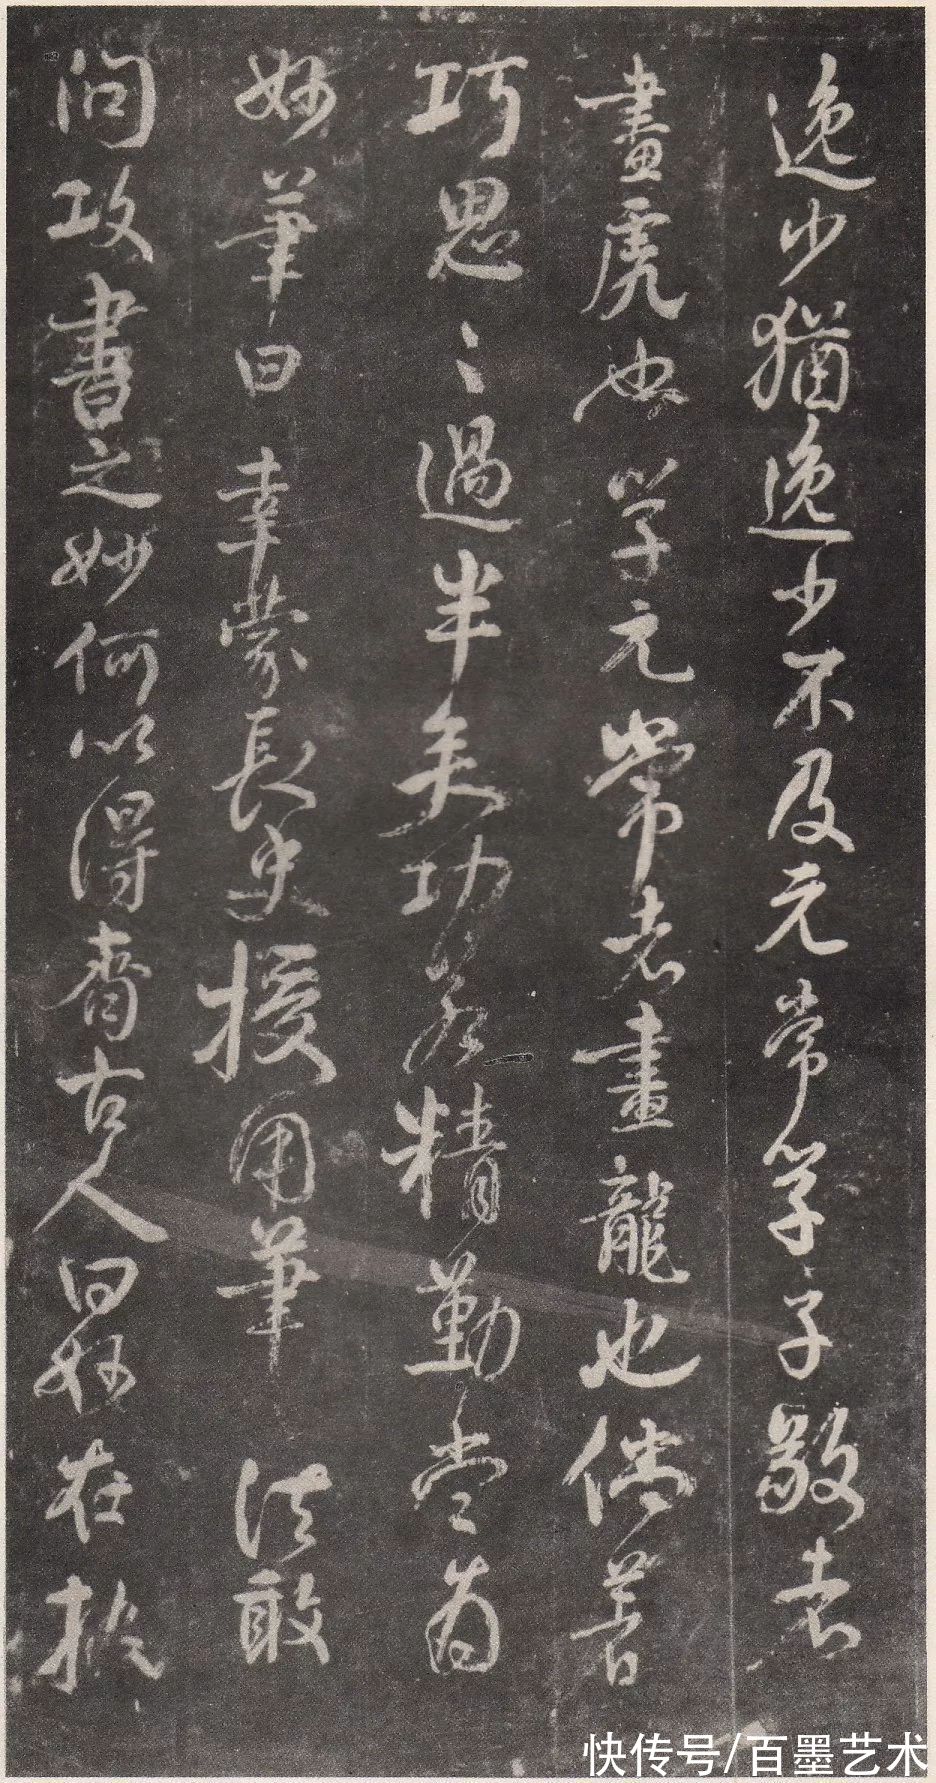 逸少猶逸少不及元常學子敬者
畫虎也學元常者畫龍也倘著
巧思〻過半矣功若精勤當為
妙筆曰幸蒙長史授用筆法敢
問攻書之妙何以得齊古人曰妙在執
快传号/百墨艺术